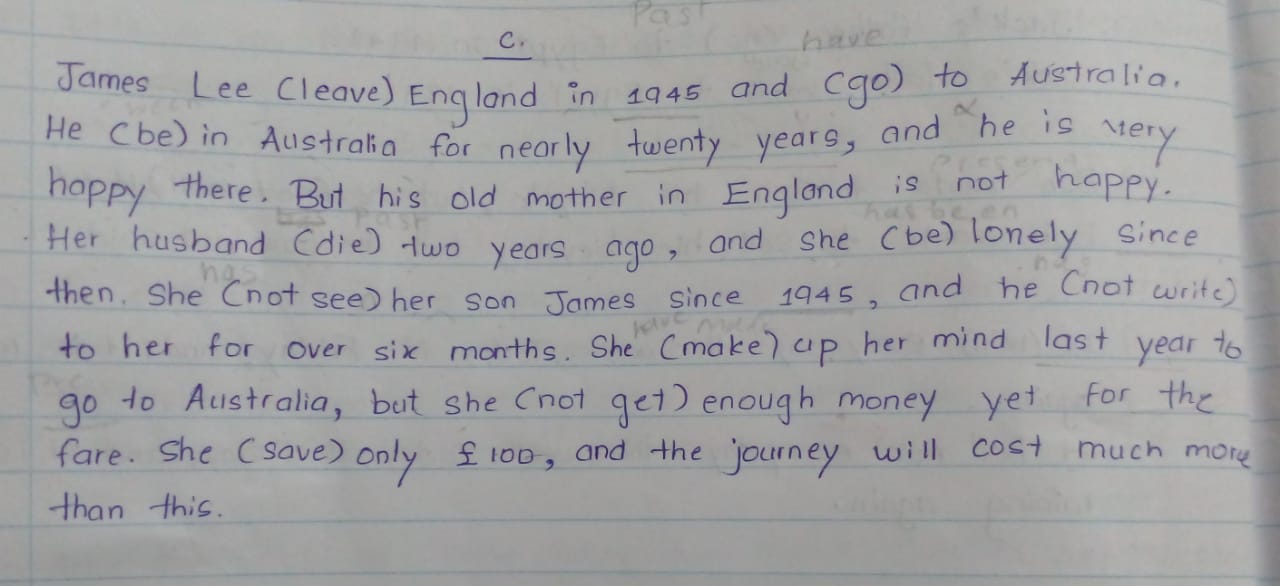 Past
C.
have
James Lee (leave) England in 1945 and (go) to Australia.
He (be) in Australia for nearly twenty years, and he is very
happy there. But his old mother in England is not happy.
has past
has been
Her husband (die) two years ago, and she (be) lonely since
has
has
then. She (not see) her son James since 1945, and he (not write)
have made
to her for over six months. She (make) up her mind last year to
go to Australia, but she (not get) enough money yet for the
fare. She (save) only £100, and the journey will cost much more
than this.